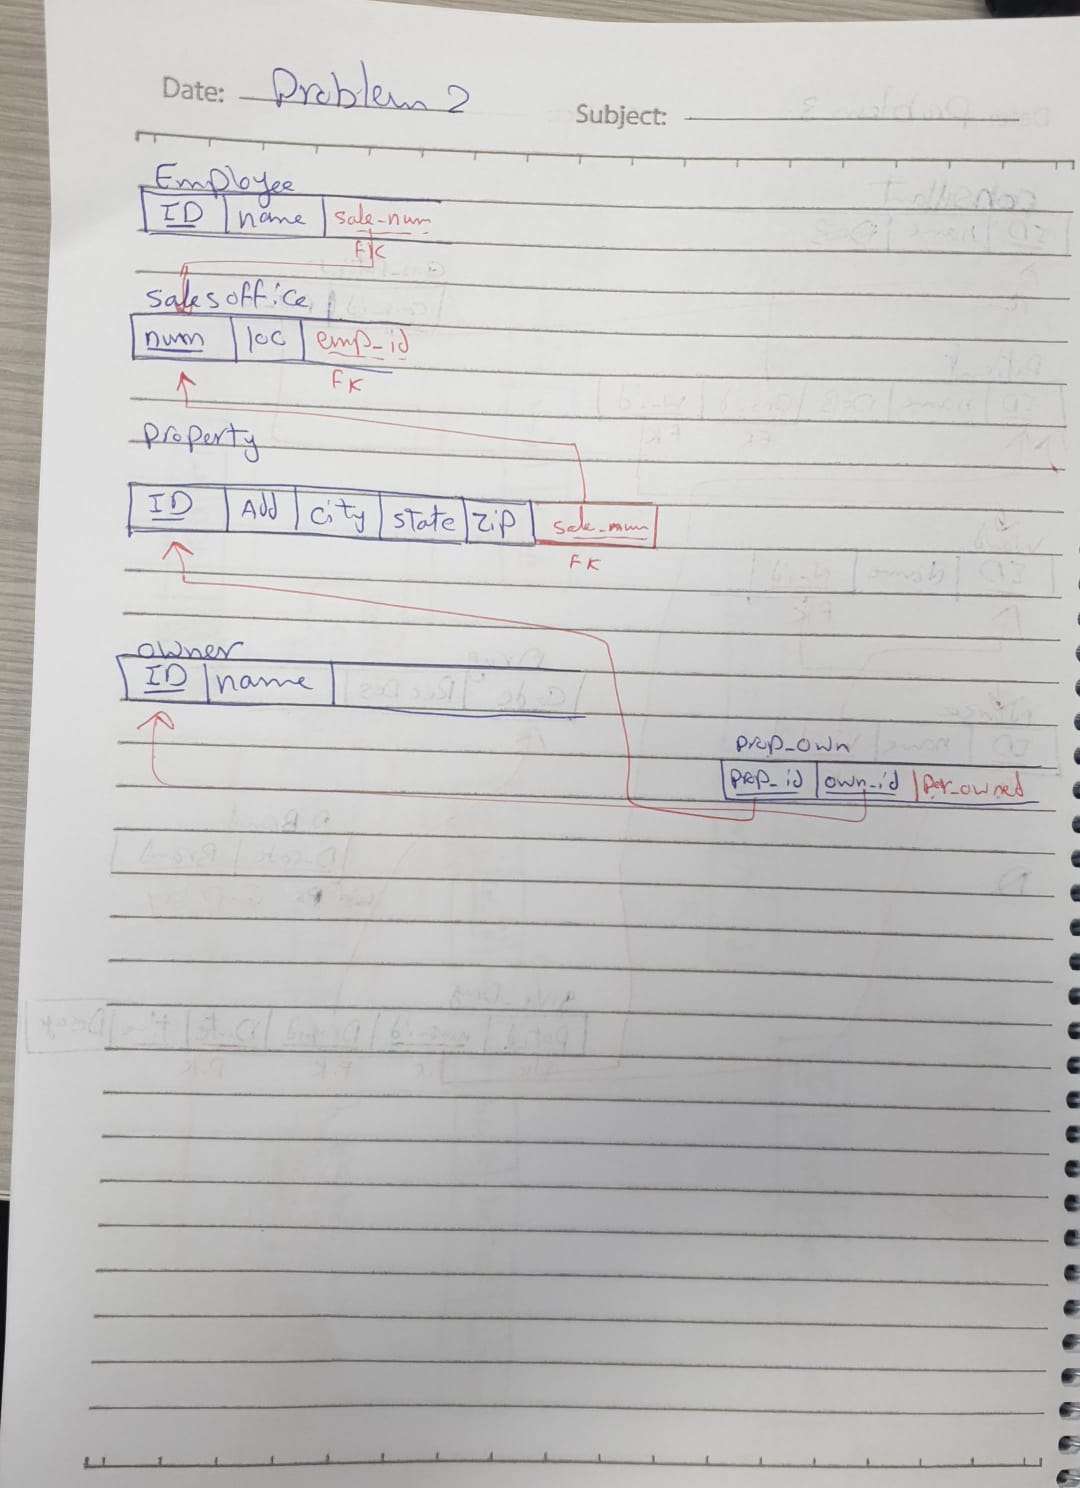 Date: Problem 2
Subject:
Employee
ID name sale-num
FK
sales office
num loc emp-id
FK
property
ID Add city state zip sale-num
FK
owner
ID name
prop-own
prop-id own-id per-owned